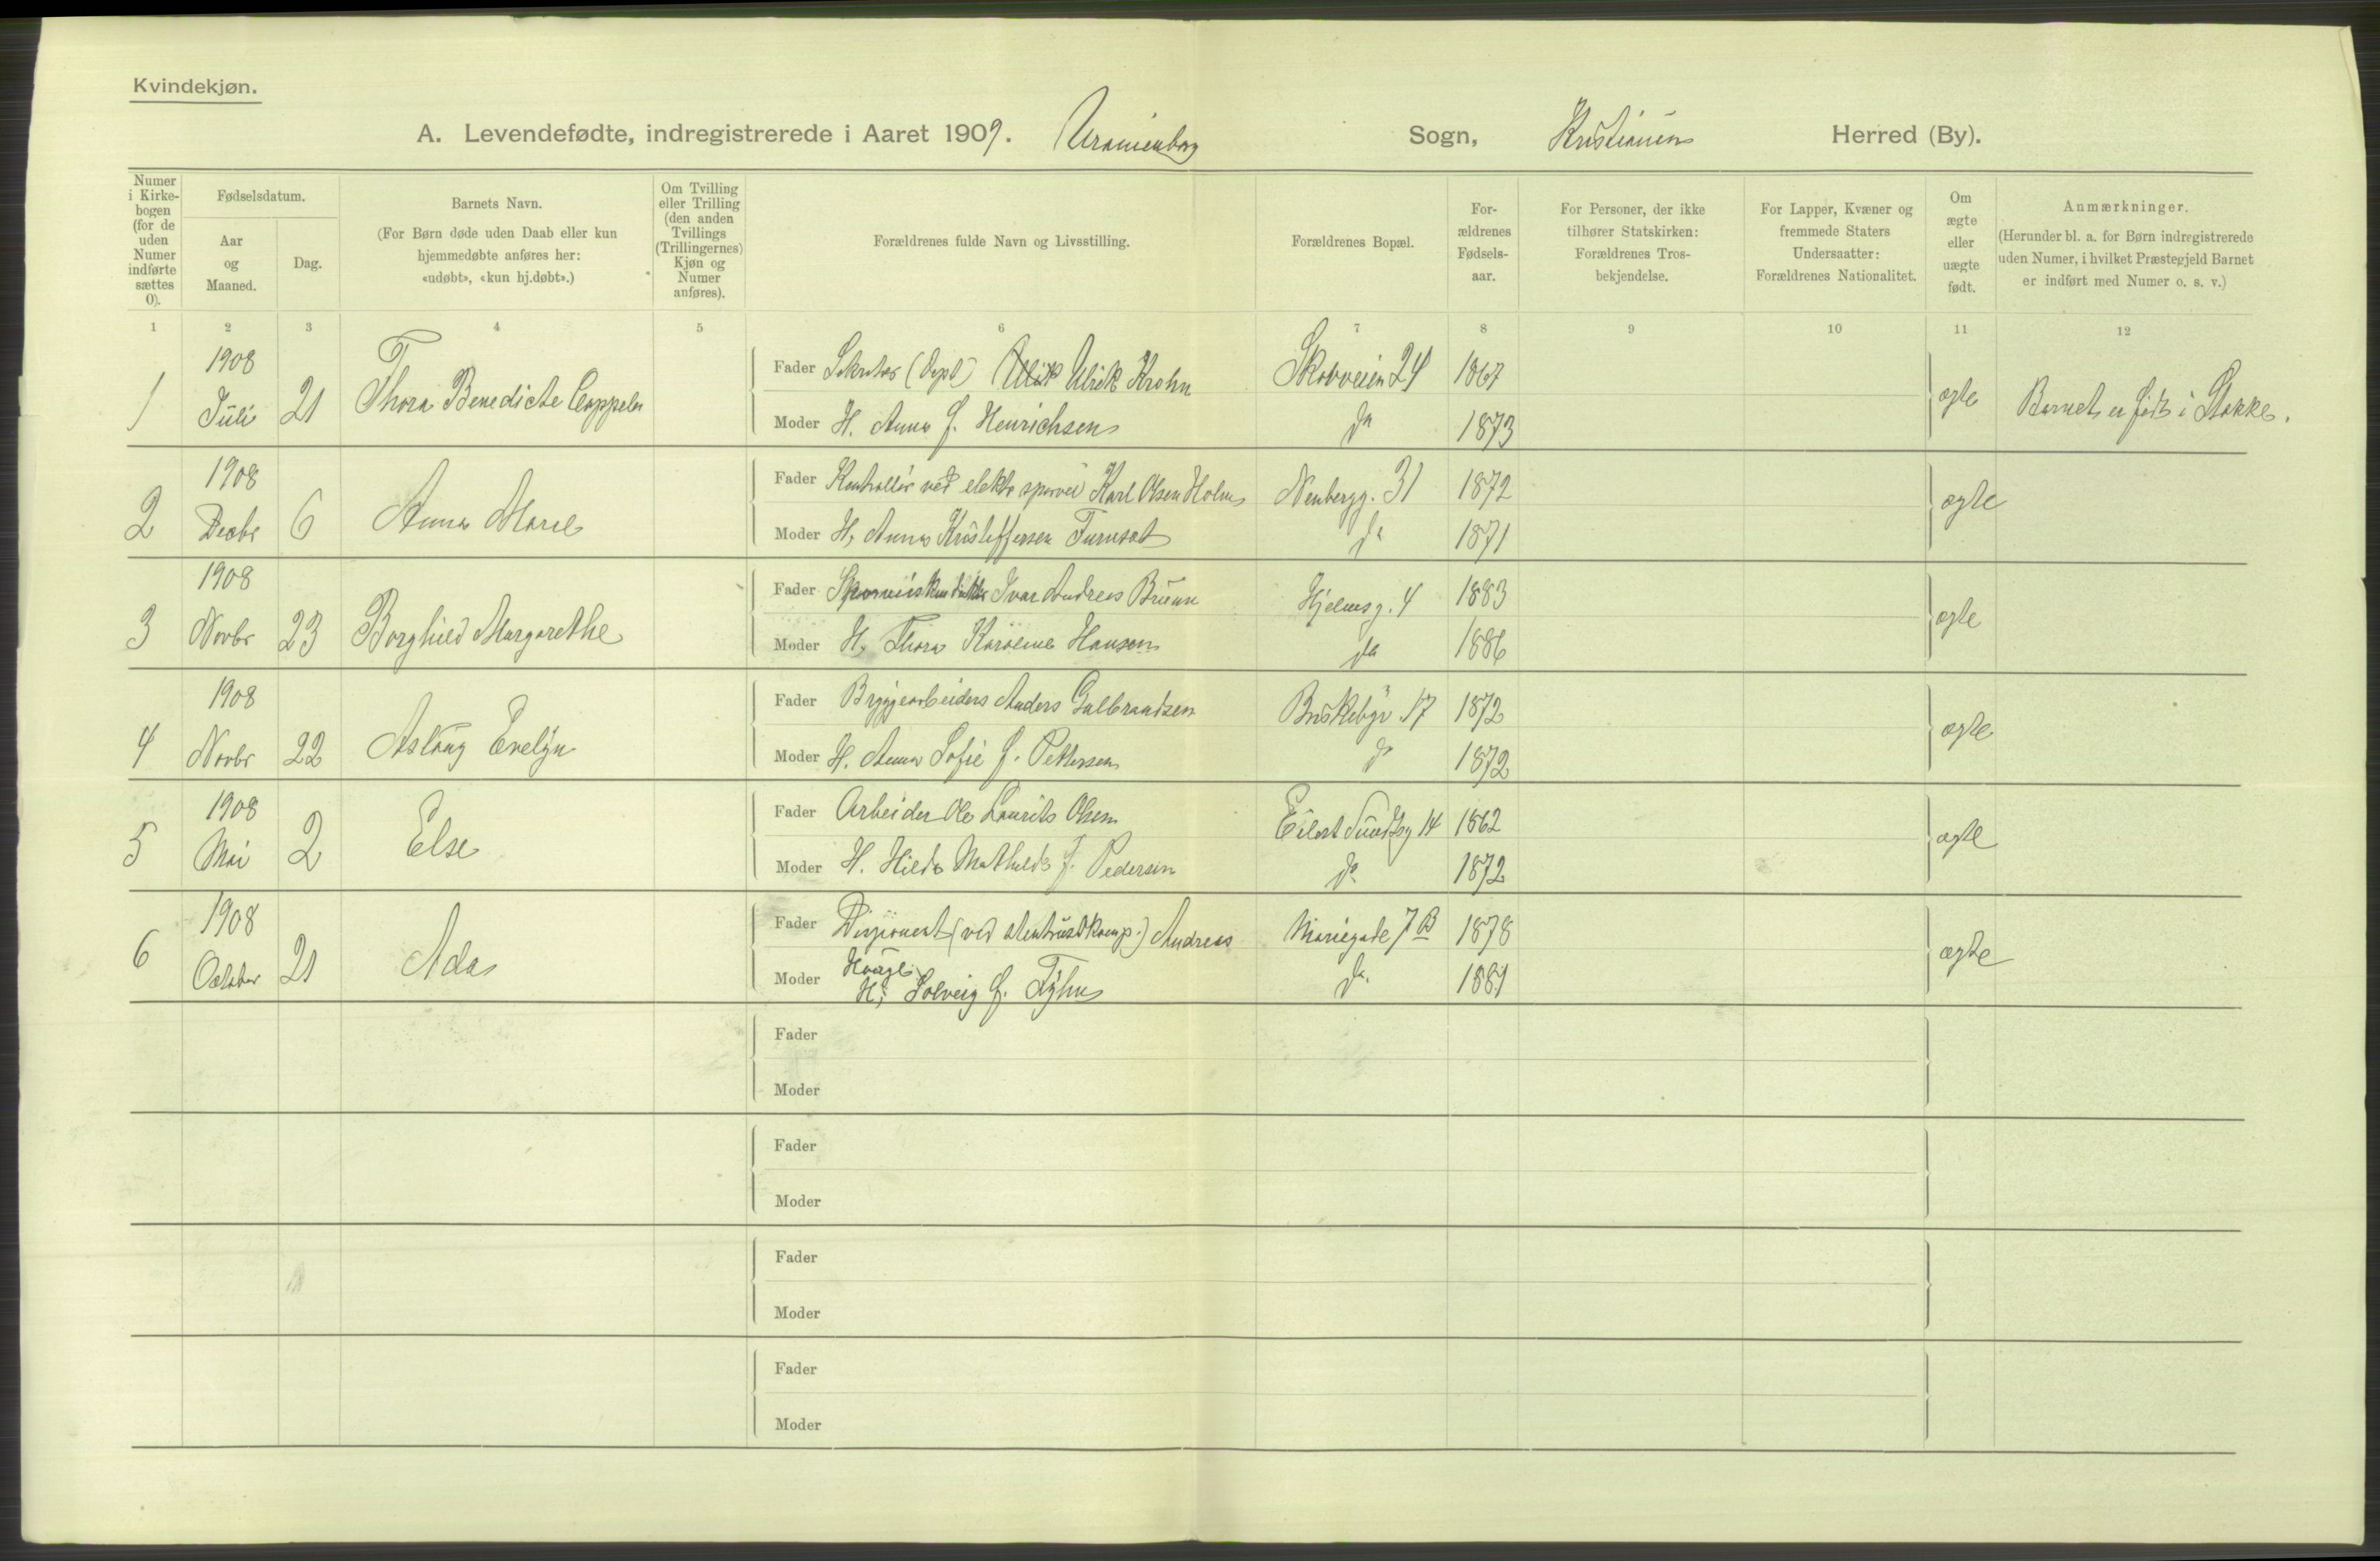 Kvindekjøn.
A. Levendefødte, indregistrerede i Aaret 1909. Uranienborg Sogn, Kristiania Herred (By).
Numer i Kirke-bogen (for de uden Numer indførte sættes 0).
Fødselsdatum.
Aar og Maaned.
Dag.
Barnets Navn.
(For Børn døde uden Daab eller kun hjemmedøbte anføres her: «udøbt», «kun hj.døbt».)
Om Tvilling eller Trilling (den anden Tvillings (Trillingernes) Kjøn og Numer anføres).
Forældrenes fulde Navn og Livsstilling.
Forældrenes Bopæl.
For-ældrenes Fødsels-aar.
For Personer, der ikke tilhører Statskirken: Forældrenes Tros-bekjendelse.
For Lapper, Kvæner og fremmede Staters Undersaatter: Forældrenes Nationalitet.
Om ægte eller uægte født.
Anmærkninger.
(Herunder bl. a. for Børn indregistrerede uden Numer, i hvilket Præstegjeld Barnet er indført med Numer o. s. v.)
1 2 3 4 5 6 7 8 9 10 11 12
1 1908 Juli 21 Thora Benedicte Cappelen
Fader Sekretær (Dept) Ulrik Krohn Skovveien 24 1867
Moder H. Anna f. Henrichsen do 1873
ægte Barnet er født i Stokke.
2 1908 Decbr 6 Anna Marie
Fader Kontrollør ved elektr sporvei Karl Olsen Holm Neubergg. 31 1872
Moder H, Anna Kristoffersen Furuset do 1871
ægte
3 1908 Novbr 23 Borghild Margarethe
Fader Sporveiskonduktør Ivar Andreas Bruun Hjelmsg. 4 1883
Moder H, Thora Karoline Hansen do 1886
ægte
4 1908 Novbr 22 Aslaug Evelyn
Fader Bryggearbeider Anders Gulbrandsen Briskebyv 17 1872
Moder H. Anna Sofie f. Pettersen do 1872
ægte
5 1908 Mai 2 Else
Fader Arbeider Ole Laurits Olsen Eilert Sundtsg 14 1862
Moder H. Hilda Mathilde f. Pedersen do 1872
ægte
6 1908 October 21 Ada
Fader Disponent (ved Andreas Mariegade 7B 1878
Moder H, Solveig f. do. 1881
ægte
Fader
Moder
Fader
Moder
Fader
Moder
Fader
Moder